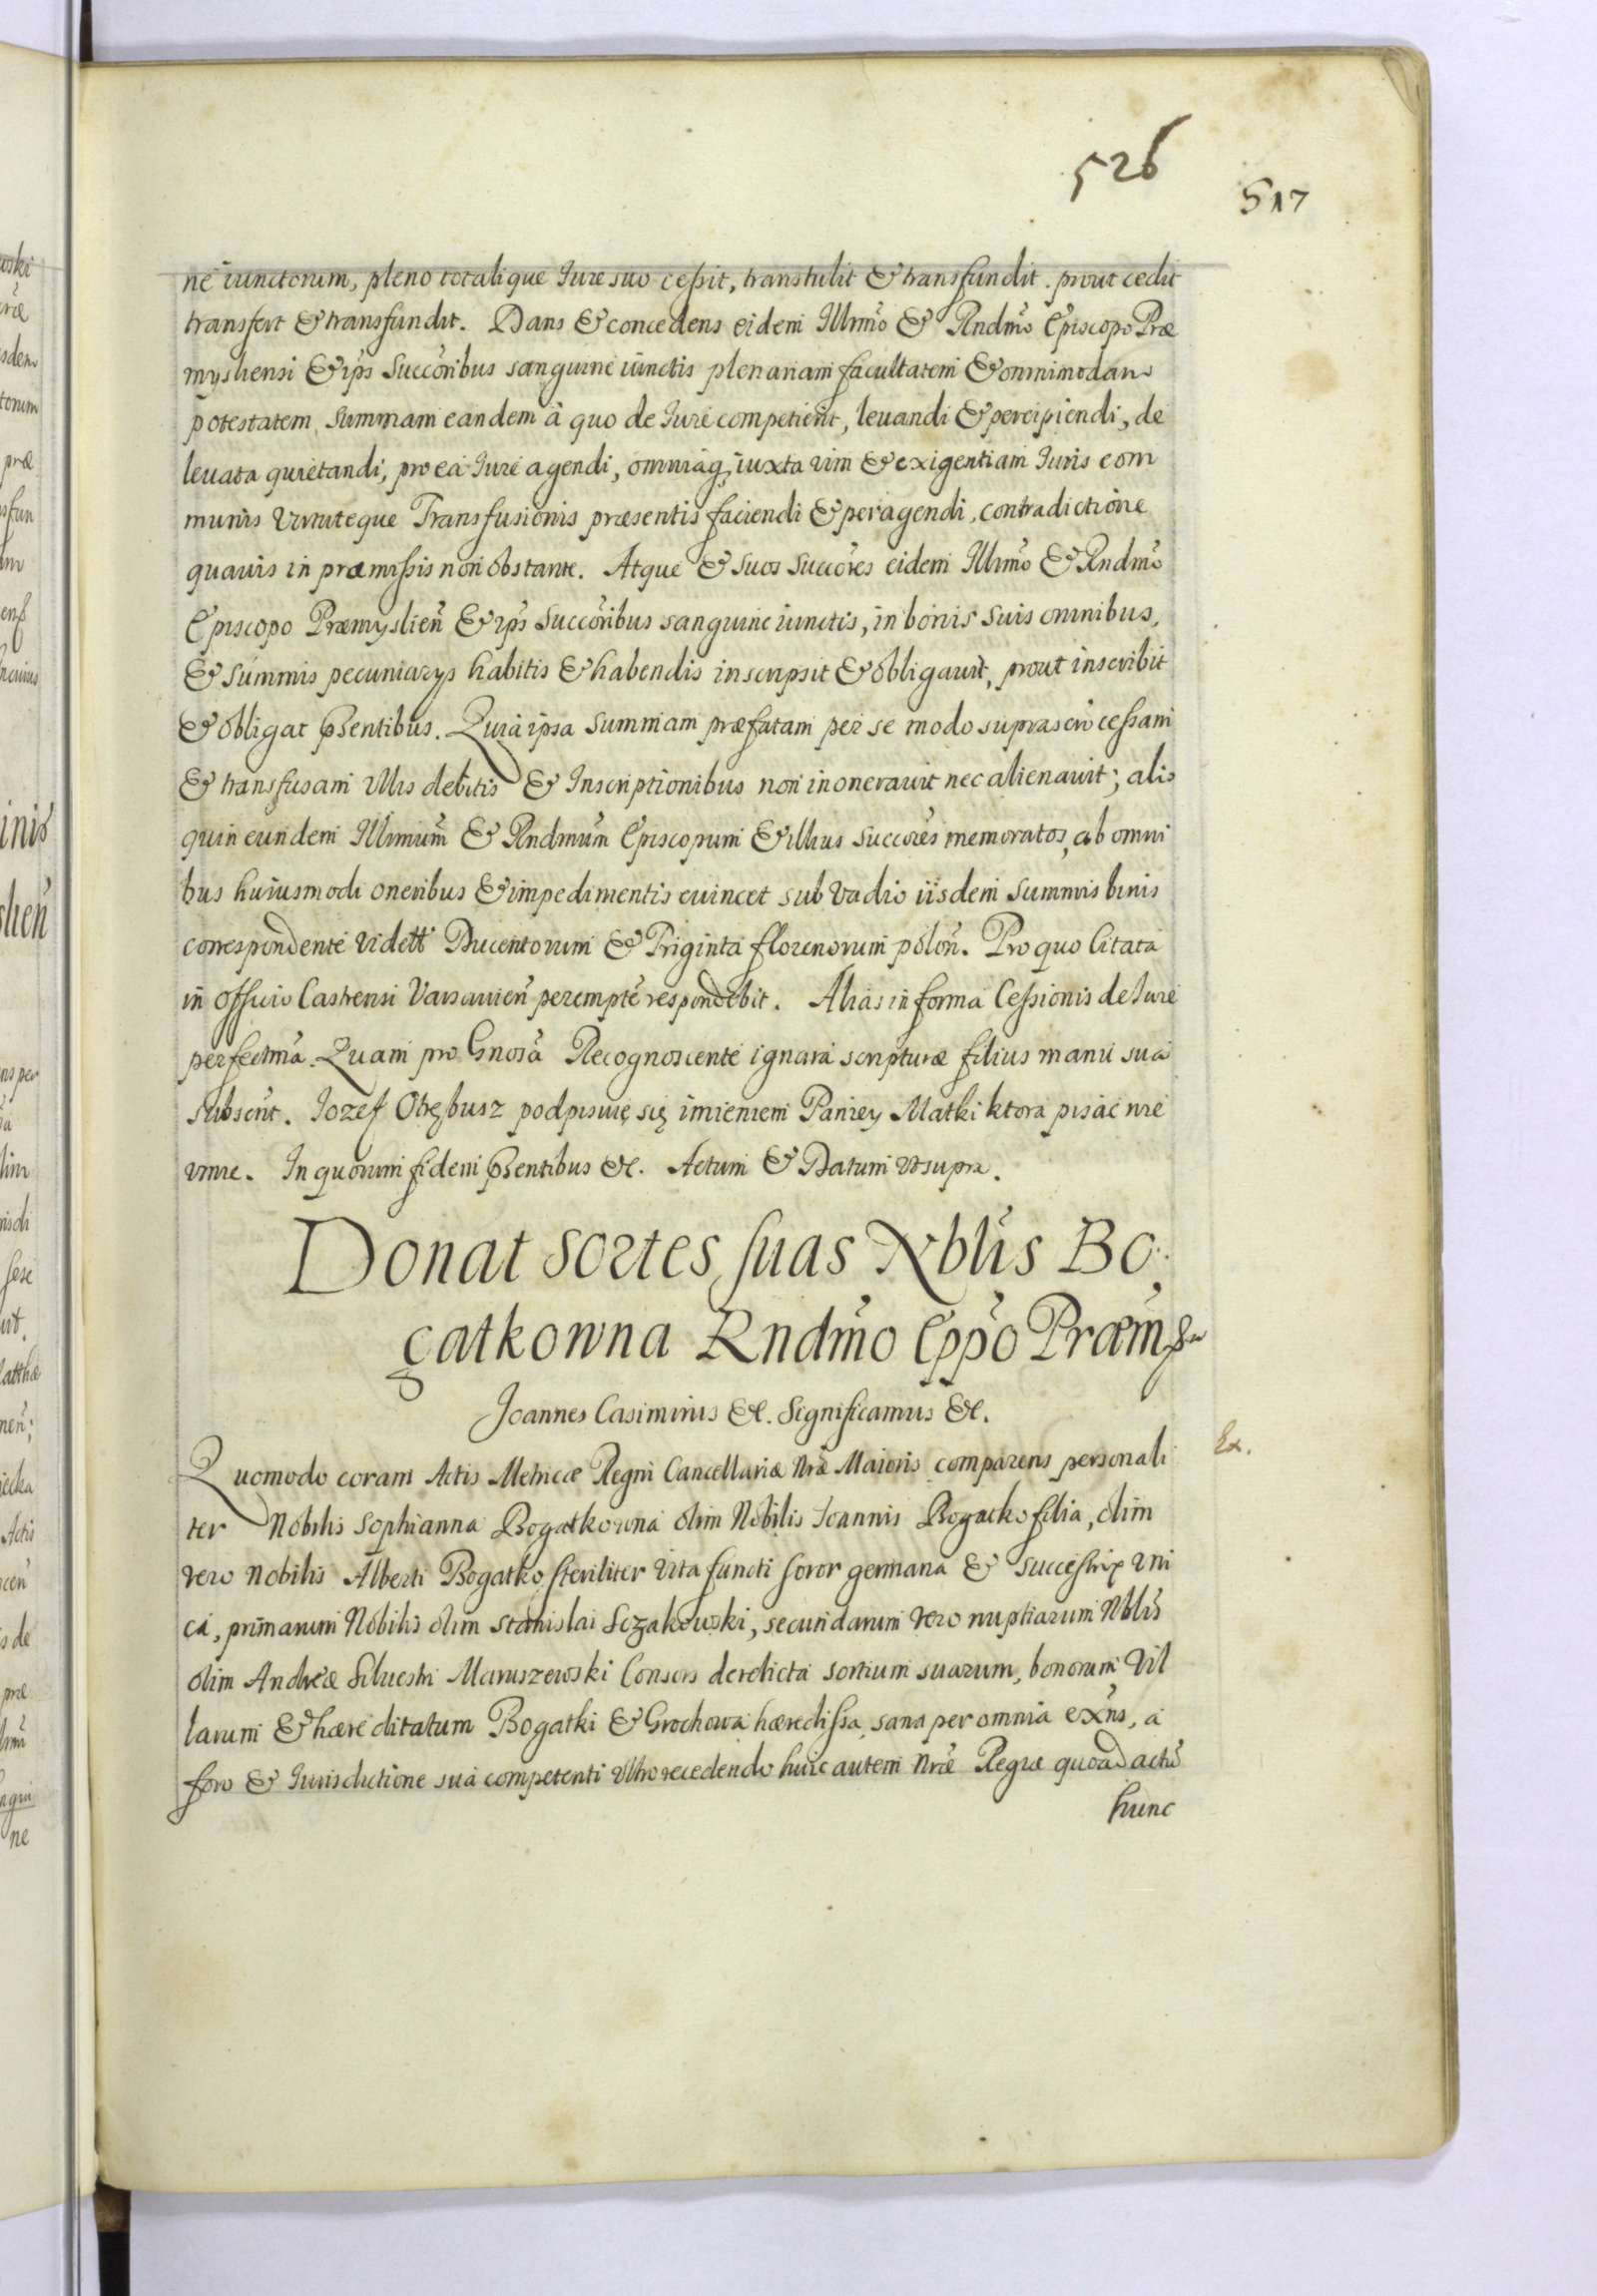 526
517
ne iunctorum, pleno totalique Iure suo cessit, transtulit & transfundit. prout cedit
transfert & transfundit. Dans & concedens eidem Illrmo & Rndmo Episcopo Præ
mysliensi & ips Succoribus sanguine iunctis plenariam facultatem & omnimodam
potestatem, Summam eandem à quo de Iure competierit, leuandi & percipiendi, de
leuata quietandi, pro ea Iure agendi, omniaq, iuxta vim & exigentiam Iuris com
munis Virtuteque Transfusionis præsentis faciendi & peragendi, contradictione
quauis in præmissis non obstante. Atque & suos Succores eidem Illrmo & Rndmo
Episcopo Præmyslien & ips Succoribus sanguine iunctis, in bonis suis omnibus,
& summis pecuniarys habitis & habendis inscripsit & obligauit, prout inscribit
& obligat psentibus. Quia ipsa Summam præfatam per se modo suprascro cessam
& transfusam vllis debitis & Inscriptionibus non inonerauit nec alienauit; alio
quin eundem Illrmum & Rndmum Episcopum & illius Succores memoratos, ab omni
bus huiusmodi oneribus & impedimentis euincet sub vadio iisdem summis binis
correspondente vidett Ducentorum & Triginta florenorum polon. Pro quo Citata
in officio Castrensi Varsauien perempte respondebit. Alias in forma Cessionis de Iure
perfectma. Quam pro Gnosa Recognoscente ignara scripturæ filius manu sua
subscrit. Iozef Otrębusz podpisuię się imieniem Paniey Matki ktora pisać nie
vmie. In quorum fidem psentibus &c. Actum & Datum vtsupra.
Donat sortes suas Nblis Bo:
gatkowna Rndmo Eppo Præmsn
Ioannes Casimirus &c. Significamus &c.
Ex.
Quomodo coram Actis Metricæ Regni Cancellariæ Nræ Maioris comparens personali
ter Nobilis Sophianna Bogatkowna olim Nobilis Ioannis Bogatko filia, olim
vero Nobilis Alberti Bogatko steriliter vita functi soror germana & successtrix vni
ca, primarum Nobilis olim Stanislai Sczakowski, secundarum vero nuptiarum Nblis
olim Andreæ Siluestri Maruszewski Consors derelicta sortium suarum, bonorum Vil
larum & hæreditatum Bogatki & Grochowa hæredissa, sana per omnia exns, a
foro & Iurisdictione sua competenti vltro recedendo huic autem Nræ Regiæ quoad actu
hunc